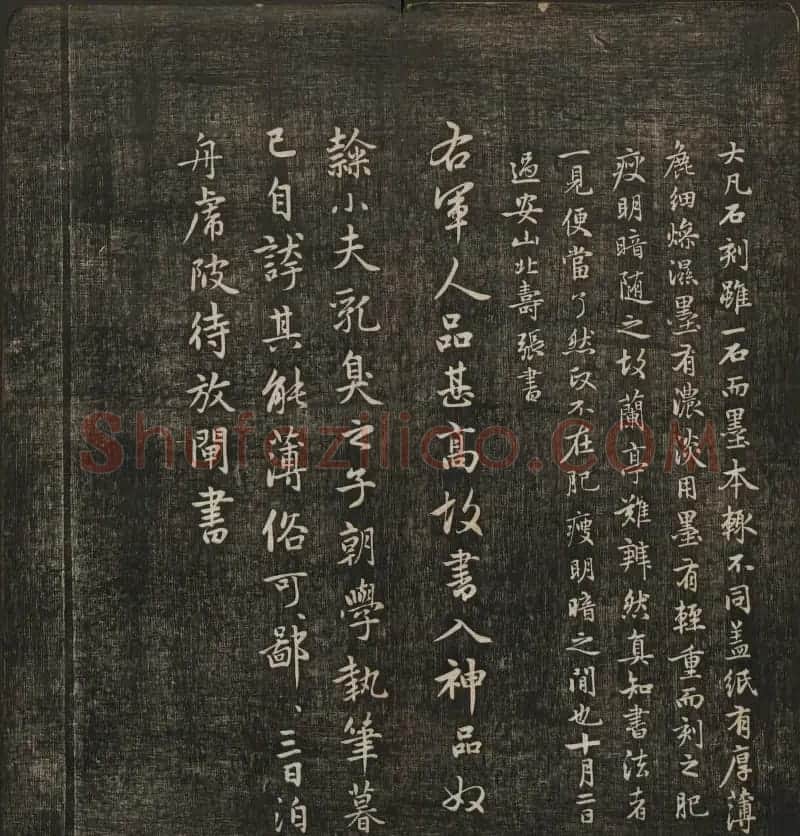 大凡石刻雖一石而墨本輙不同盖紙有厚薄
麁細燥濕墨有濃淡用墨有輕重而刻之肥
瘦明暗随之故蘭亭難辨然真知書法者
一見便當了然政不在肥瘦明暗之間也十月二日
過安山北壽張書
右軍人品甚高故書入神品奴
隸小夫乳臭之子朝學執筆暮
已自誇其能薄俗可鄙、三日泊
舟虎陂待放閘書
Shufaziliao.COM